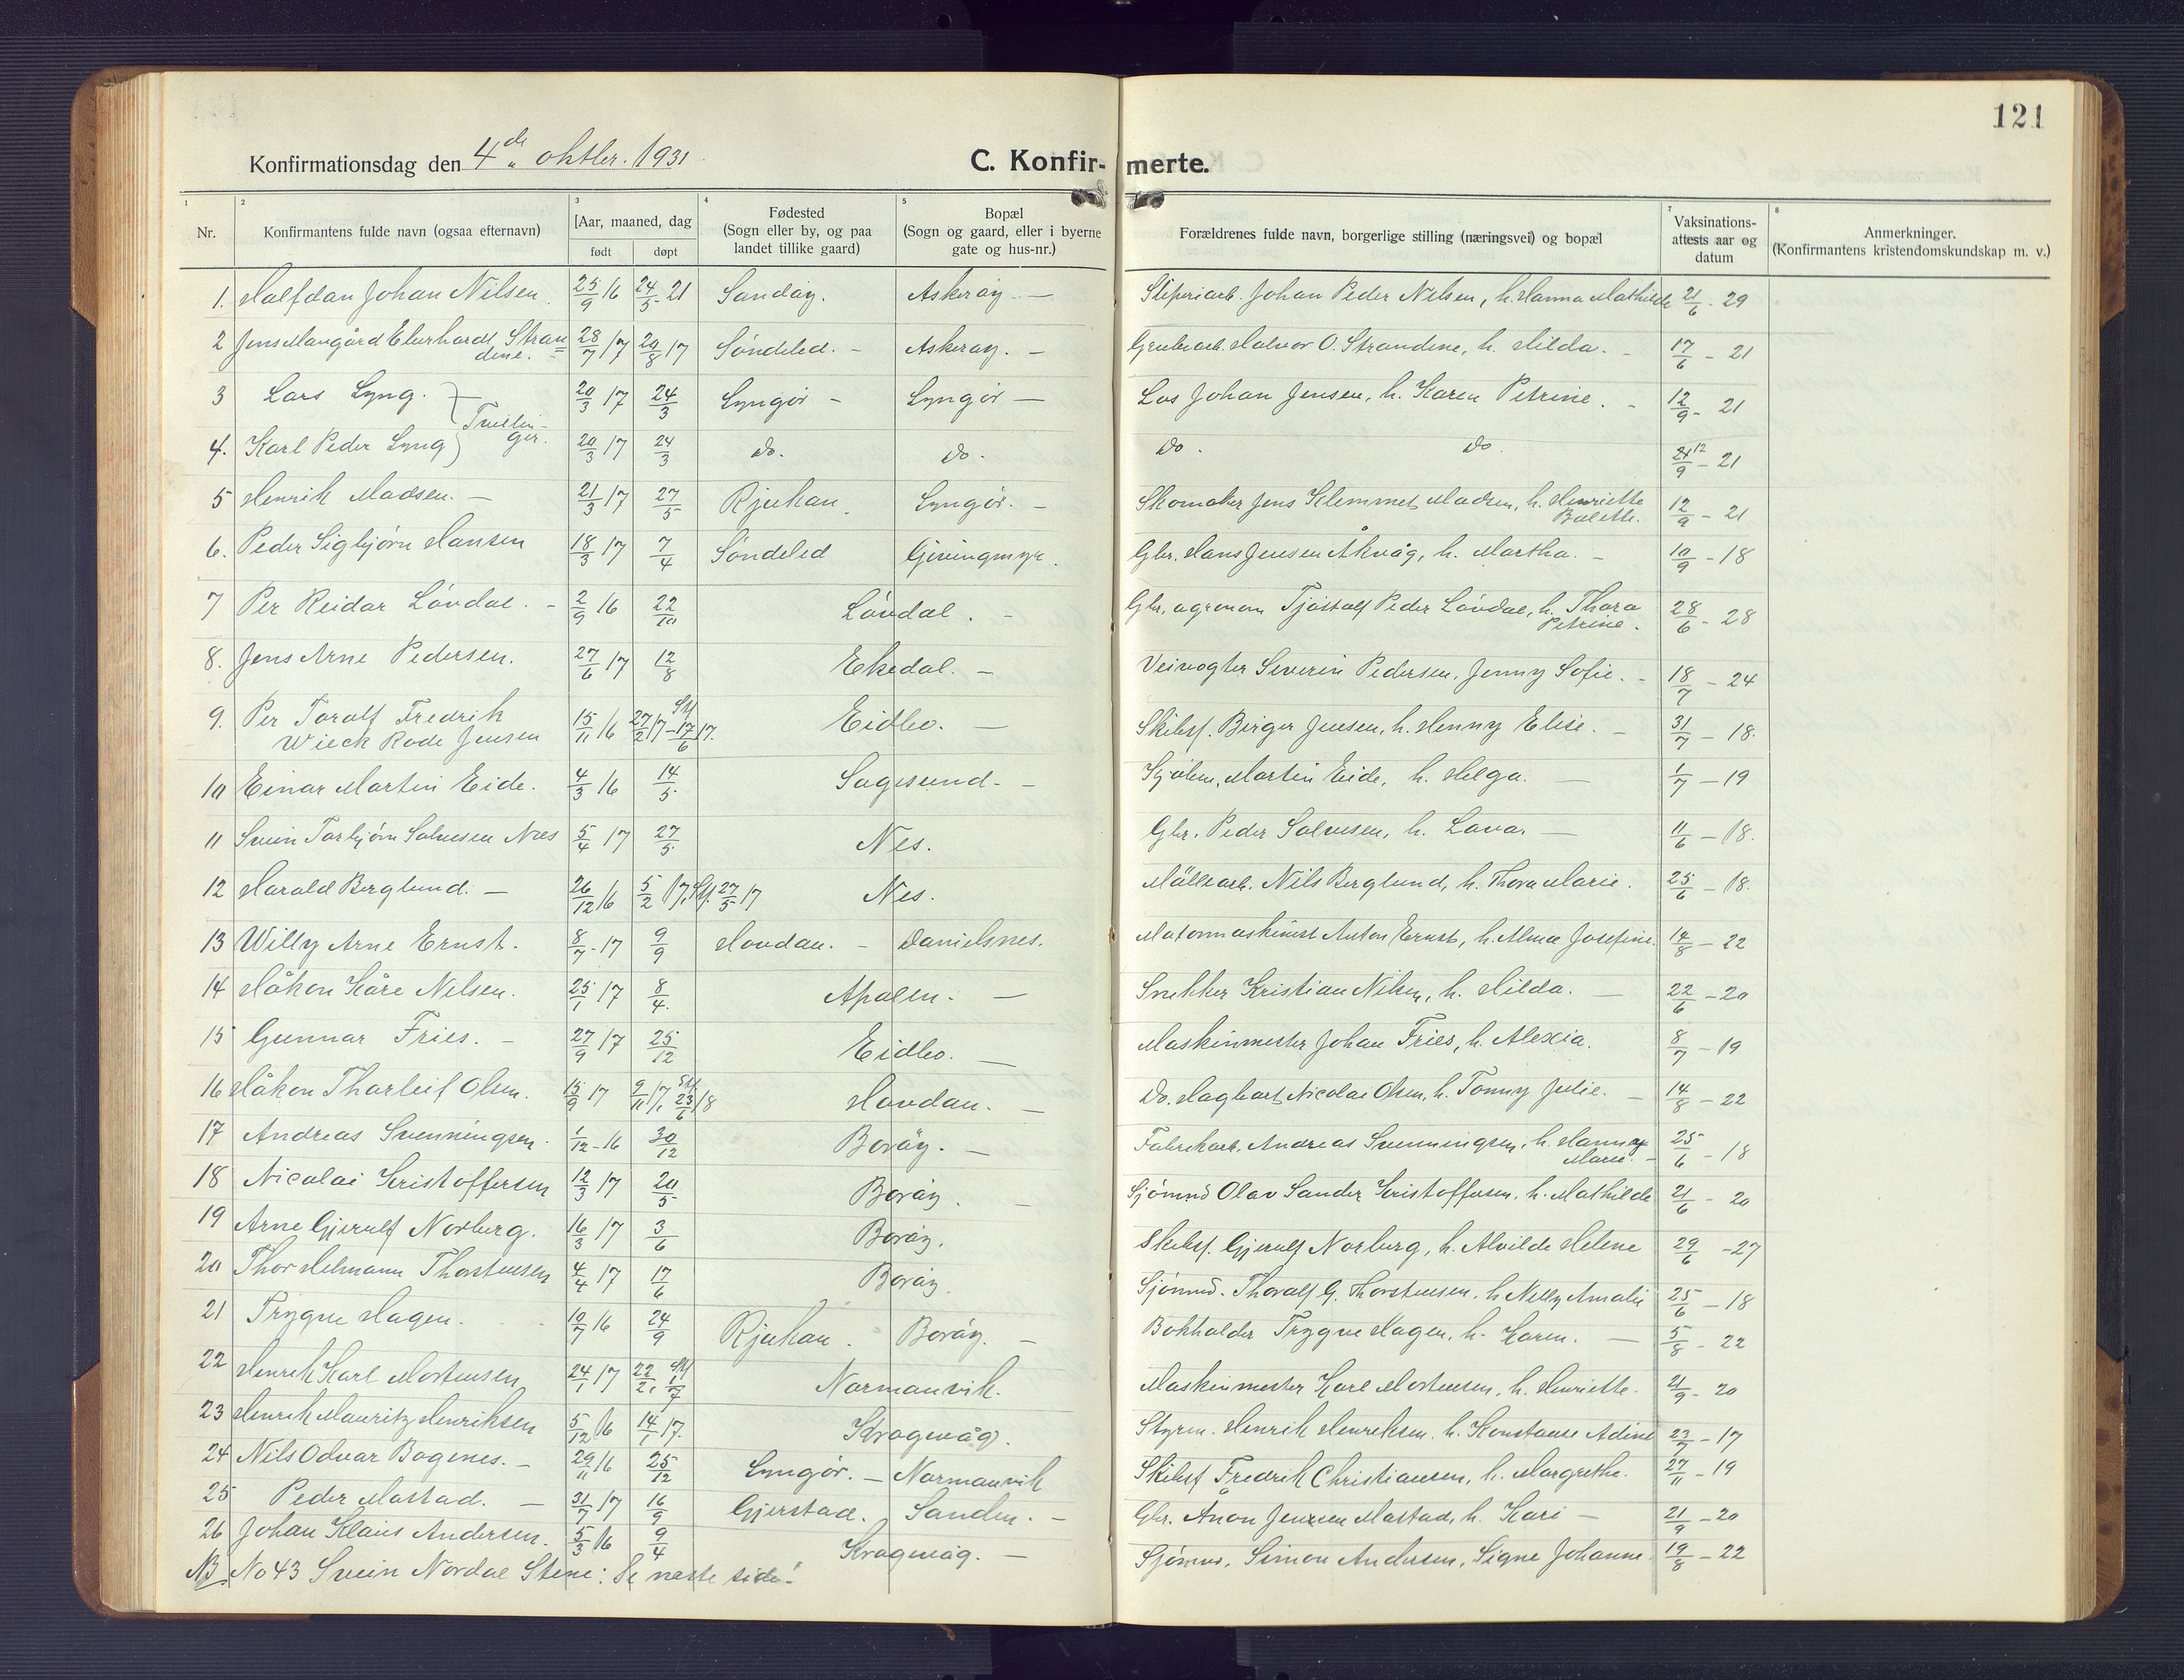 121
Konfirmationsdag den 4de oktbr. 1931
C. Konfir- merte.
1 2 3 4 5 7 8
Nr. Konfirmantens fulde navn (ogsaa efternavn) [Aar, maaned, dag født døpt Fødested (Sogn eller by, og paa landet tillike gaard) Bopæl (Sogn og gaard, eller i byerne gate og hus-nr.) Forældrenes fulde navn, borgerlige stilling (næringsvei) og bopæl Vaksinations-attests aar og datum Anmerkninger. (Konfirmantens kristendomskundskap m. v.)
1. Halfdan Johan Nilsen. 25/9 16 24/5-21 Sandøy. Askerøy. — Sliperiarb. Johan Peder Nilsen, h. Hanna Mathilde 21/6 - 29
2 Jens Haugård Eberhardt Strandene. 28/7 17 20/8 17 Søndeled. - Askerøy. - Grubearb. Halvor O. Strandene, h. Hilda. - 17/6 - 21
3 Lars Lyng. 20/3 17 24/3 Lyngør - Lyngør — Los Johan Jensen, h. Karen Petrine. - 12/9 - 21
Tvillinger.
4. Karl Peder Lyng 20/3 17 24/3 do. do. do. do. 12/9 - 21
5 Henrik Madsen. — 21/3 17 27/5 Rjukan. Lyngør. - Skomaker Jens Klemmet Madsen, h. Henriette Bolette. 12/9 - 21
6. Peder Sigbjørn Hansen 18/3 17 7/4 Søndeled Givingmyr. Gbr. Hans Jensen Åkvåg, h. Martha. - 10/9 - 18
7 Per Reidar Løvdal. - 2/9 16 22/10 Løvdal. - Gbr. agronom Tjøstolf Peder Løvdal, h. Thora Petrine. 28/6 - 28
8. Jens Arne Pedersen. 27/6 17 12/8 Ekedal. - Veivogter Severin Pedersen. Jenny Sofie. - 18/7 - 24
9. Per Toralf Fredrik Wieck Rode Jensen 15/11 16 27/2 17 - 17/6 17. Eidbo. — Skibsf. Birger Jensen, h. Henny Elise. - 31/7 - 18.
10 Einar Martin Eide. 4/3 16 14/5 Sagesund. - Sjøm. Martin Eide, h. Helga. — 1/7 - 19
11 Svein Torbjørn Salvesen Næs 5/4 17 27/5 Nes. Gbr. Peder Salvesen, h. Lova. — 11/6 - 18.
12 Harald Berglund. — 26/12 16 5/2 17, 27/5 17 Nes. Møllearb. Nils Berglund, h. Thora Marie. 25/6 - 18.
13 Willy Arne Ernst. 8/7 - 17 9/9 Hovdan. - Danielsnes. Motormaskinist Anton Ernst, h. Alma Josefine. 14/8 - 22
14 Håkon Kåre Nilsen. 25/1 17 8/4. Apalen. — Snekker Kristian Nilsen, h. Hilda. — 22/6 - 20
15 Gunnar Fries. - 27/9 17 25/12 Eidbo. — Maskinmester Johan Fries, h. Alexia. 8/7 - 19
16 Håkon Tharleif Olsen. 15/9 17 9/11 17, 23/6 18 Hovdan. — Do. Hagbart Nicolai Olsen, h. Tonny Julie. — 14/8 - 22
17 Andreas Svenningsen. 1/12 - 16 30/12 Borøy. — Fabrikarb. Andreas Svenningsen, h. Hanny Marie. - 25/6 - 18
18 Nicolai Kristoffersen 12/3 17 20/5 Borøy. - Sjømnd Olav Sander Kristoffersen. h. Mathilde 21/6 - 20
19 Arne Gjerulf Norberg. 16/3 17 3/6 Borøy. Skibsf. Gjerulf Norberg, h. Alvilde Helene 29/6 - 27
20 Thor Helmann Thorstensen 4/4 17 17/6 Borøy Sjømnd. Thoralf G. Thorstensen, h Nelly Amalie 25/6 - 18
21 Trygve Hagen. 10/7 16 24/9 Rjukan. Borøy. - Bokholder Trygve Hagen, h. Karen. — 5/8 - 22
22 Henrik Karl Mortensen 24/1 17 22/2, 1/7 Normanvik. Maskinmester Karl Mortensen, h. Henriette. 21/9 - 20
23 Henrik Mauritz Henriksen 5/12 16 14/1 17. Kragevåg. Styrm. Henrik Henriksen. h. Konstanse Adine 23/7 - 17
24 Nils Odvar Bogenes. - 29/11 16 25/12 Lyngør. — Normanvik Skibsf Fredrik Christiansen, h. Margrethe. 27/11 - 19
25 Peder Mostad. — 31/7 17 16/9 Gjerstad. Sanden. - Gbr. Anon Jensen Mostad, h. Kari — 21/9 - 20
26 Johan Klaus Andersen. 5/3 16 9/4 Kragevåg. — Sjømn. Simon Andersen, Signe Johanne. 19/8 - 22
NB No 43 Svein Nordal Stene: Se næste side!